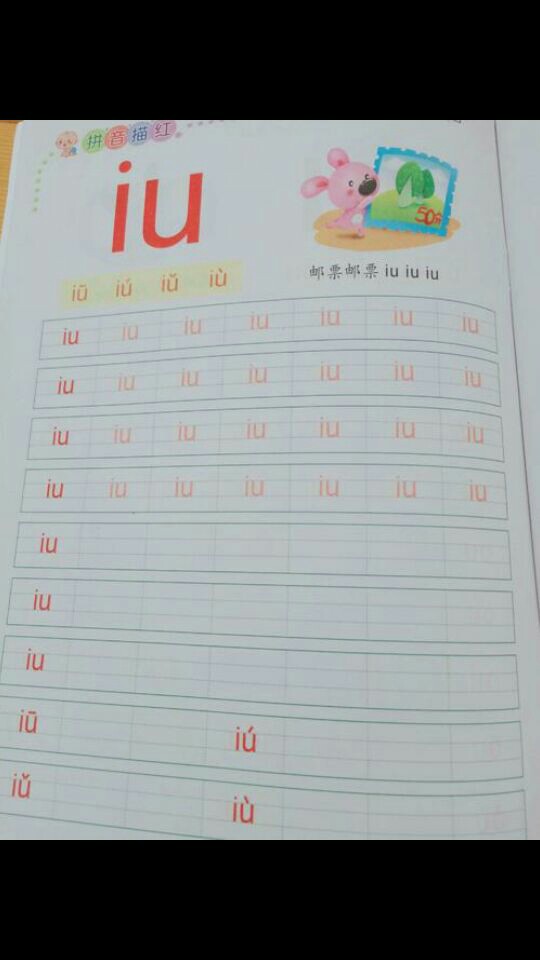 拼音描红
iu
50分
iū iú iǔ iù
邮票邮票 iu iu iu
iu iu iu iu iu iu iu
iu iu iu iu iu iu iu
iu iu iu iu iu iu iu
iu iu iu iu iu iu iu
iu
iu
iu
iū iú
iǔ iù